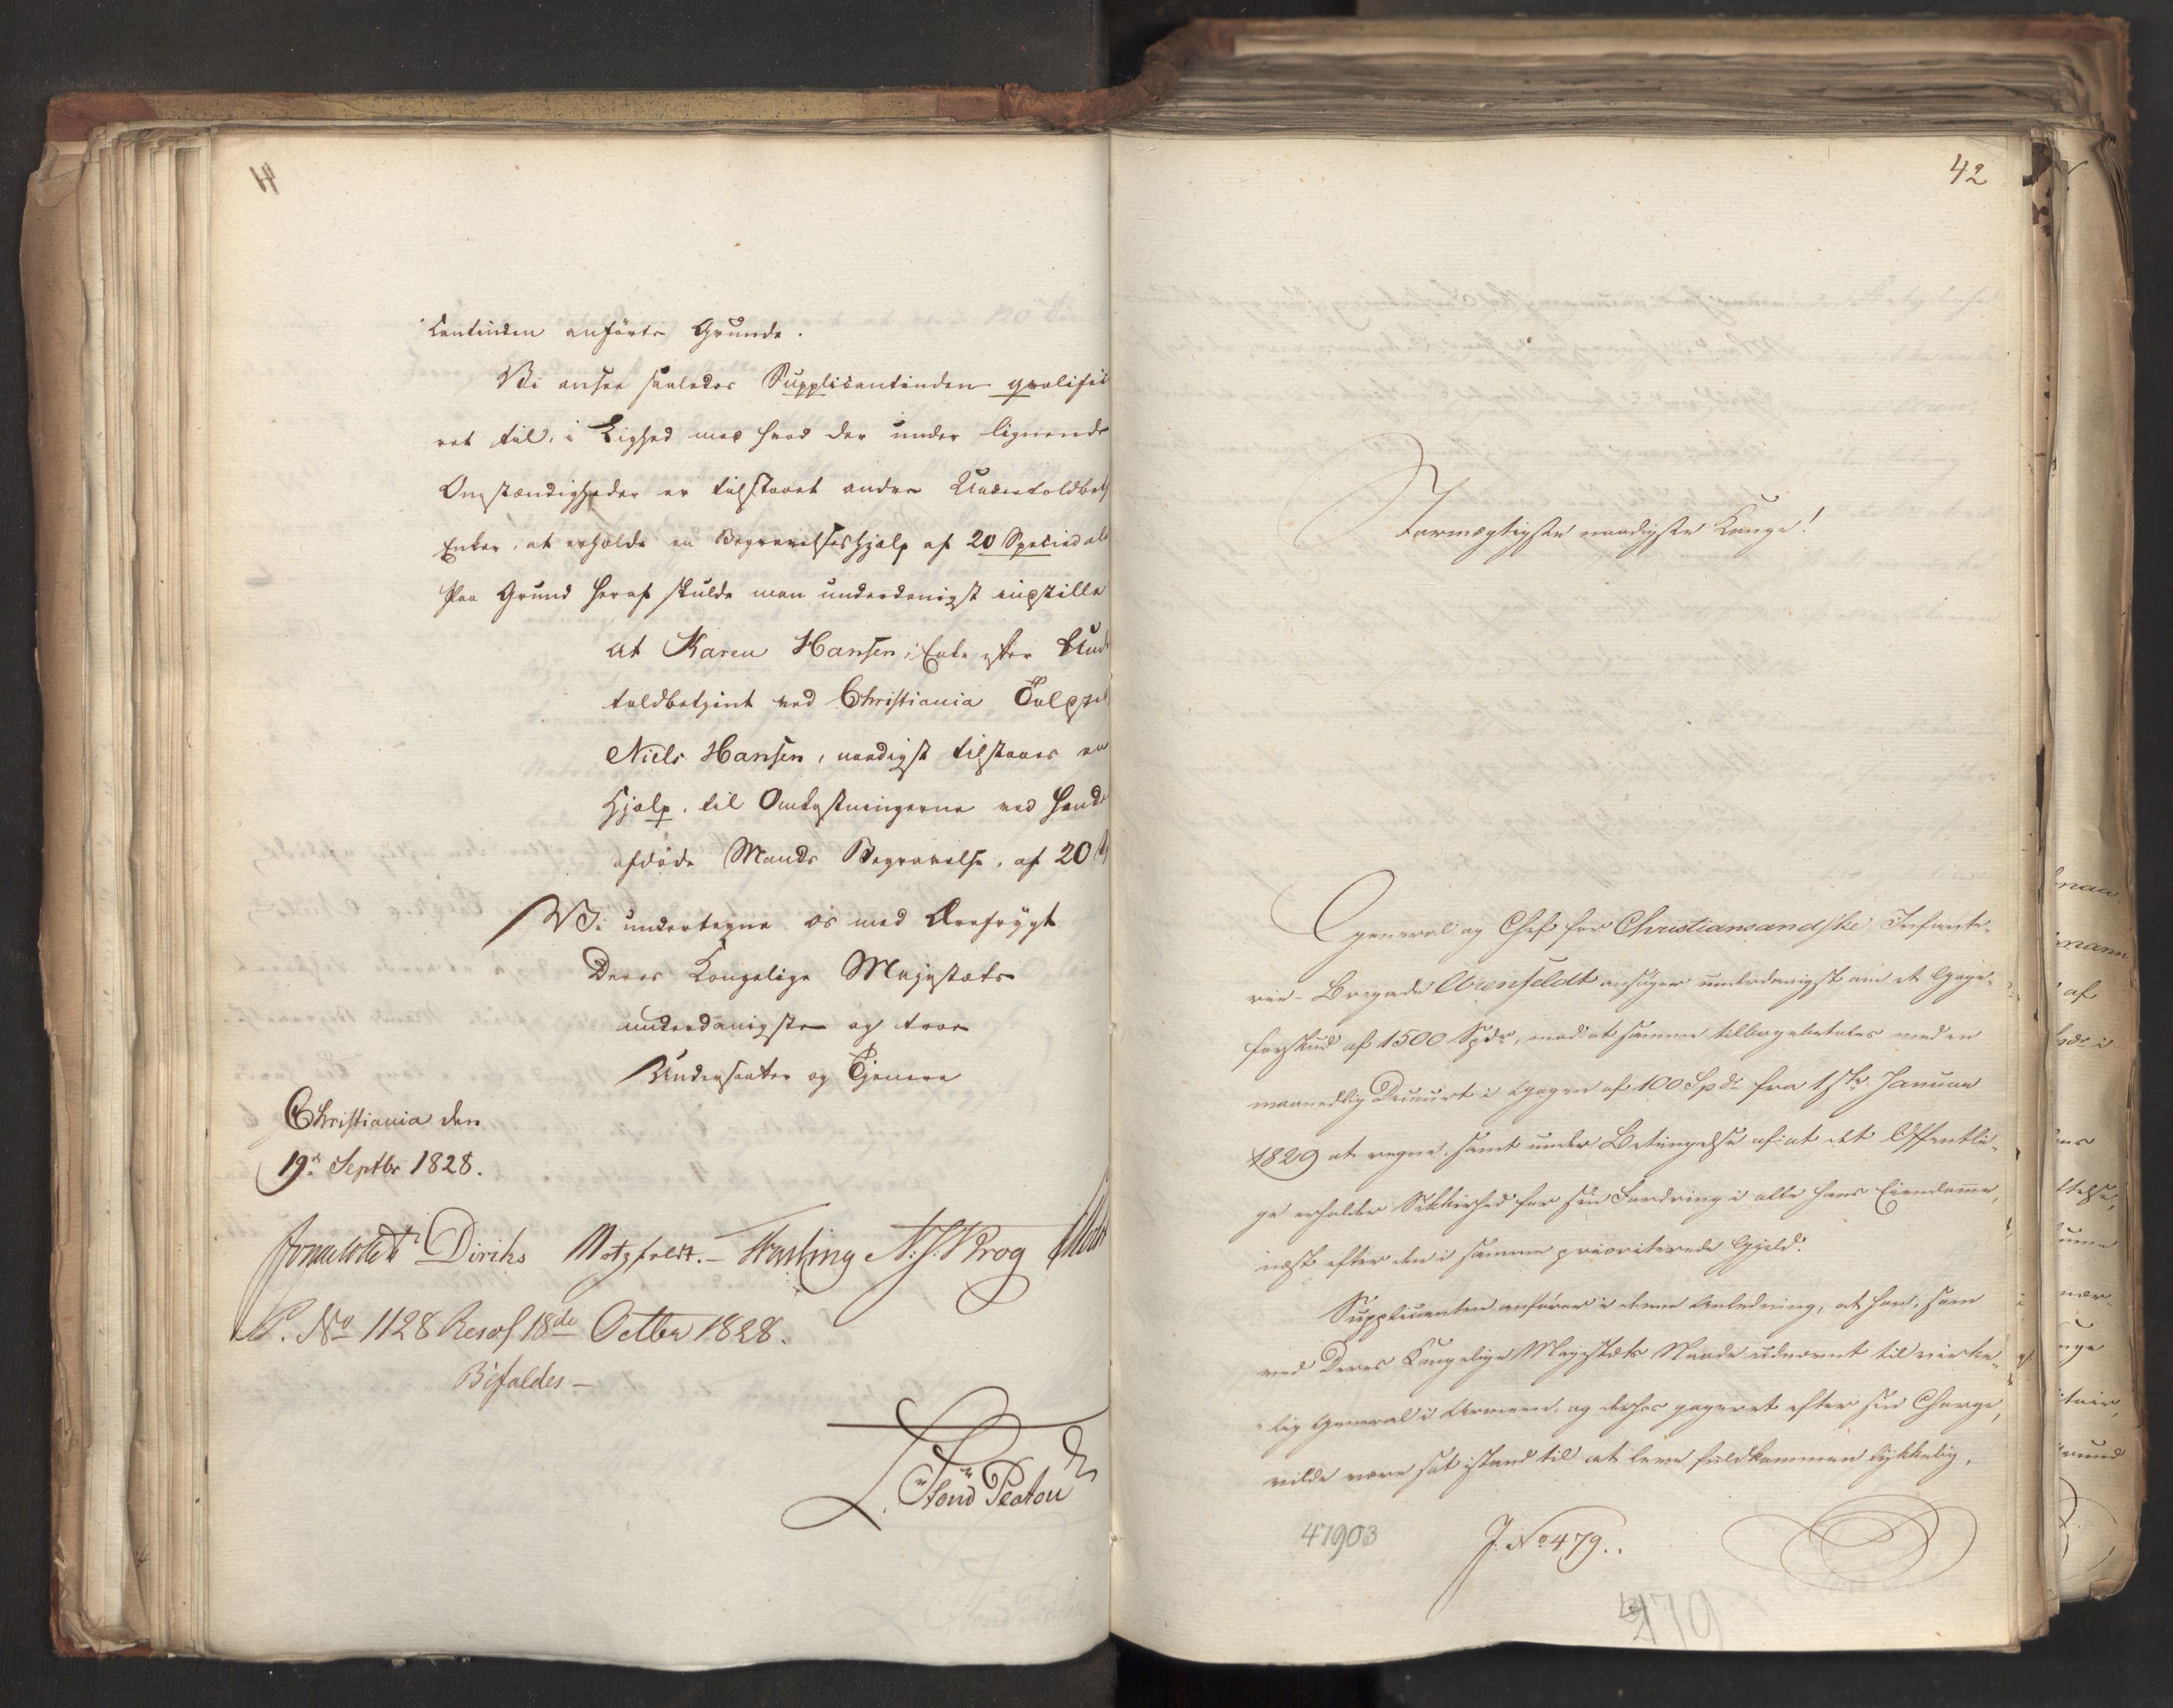 cantinden anførte Grunde.
Vi ansee saaledes Supplicantinden qvalifice
ret til, i Lighed med hvad der under lignende
Omstændigheder er tilstaaet andre Undertoldbetj
Enker, at erholde en Begravelseshjelp af 20 Speciedale
Paa Grund heraf skulde man underdanigst indstille
at Karen Hansen, Enke efter Und
toldbetjent ved Christiania Toldsted
Niels Hansen, naadigst tilstaaes en
Hjelp, til Omkostningerne ved hend
afdøde Mands Begravelse, af 20
Vi undertegne os med Ærefrygt
Deres Kongelige Majestæts
underdanigste og troe
Undersaatter og Tjenere
Christiania den
19de Septbr 1828.
Diriks Motzfeldt. Fasting N. J. Krog
P. No 1128 Resol 18de Octbr 1828.
Bifaldes-
42
Stormægtigste naadigste Konge!
General og Chef for Christiansandske Infante-
rie-Brigade Arenfeldt ansøger underdanigst om et Gage-
forskud af 1500 Spdr, mod at samme tilbagebetales med en
maanedlig Decourt i Gagen af 100 Spdr fra 1ste Januar
1829 at regne, samt under Betingelse af at det Offentli-
ge erholder Sikkerhed for sin Fordring i alle hans Eiendomme,
næst efter den i samme prioriterede Gjeld.
Supplicanten anfører i denne Anledning, at han, som
ved Deres Kongelige Majestæts Naade udnævnt til virke-
lig General i Armeen, og derhos gageret efter sin Charge,
vilde være sat istand til at leve fuldkommen lykkelig,
41903
J. No 479.
479